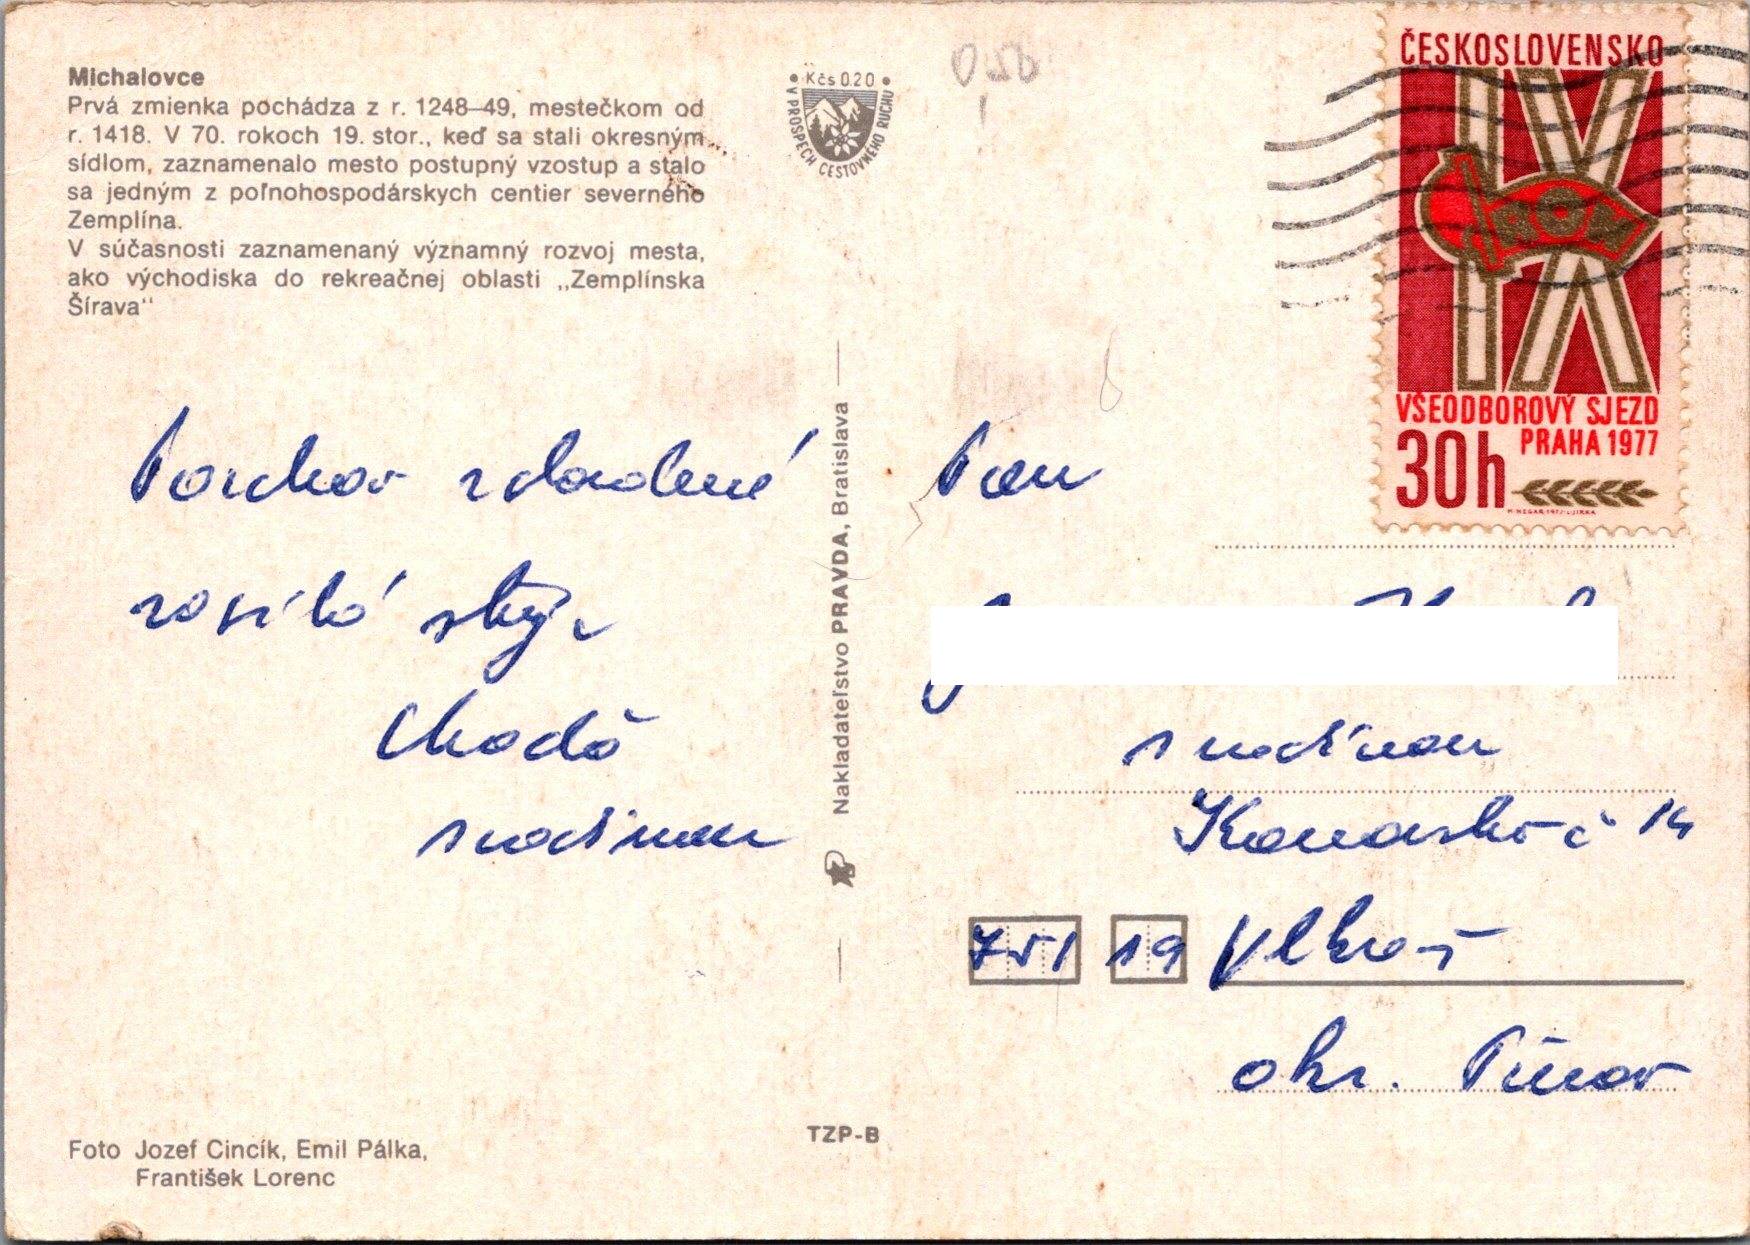 Michalovce
Prvá zmienka pochádza z r. 1248–49, mestečkom od
r. 1418. V 70. rokoch 19. stor., keď sa stali okresným
sídlom, zaznamenalo mesto postupný vzostup a stalo
sa jedným z poľnohospodárskych centier severného
Zemplína.
V súčasnosti zaznamenaný významný rozvoj mesta,
ako východiska do rekreačnej oblasti „Zemplínska
Šírava“
• Kčs 0.20 •
V PROSPECH CESTOVNÉHO RUCHU
ČESKOSLOVENSKO
IX
ROH
VŠEODBOROVÝ SJEZD
PRAHA 1977
30h
Pozdrav
strýc
s rodinou
Nakladateľstvo PRAVDA, Bratislava
Pan
s rodinou
14
751 19 Vlkoš
okr. Přerov
Foto Jozef Cincík, Emil Pálka,
František Lorenc
TZP-B